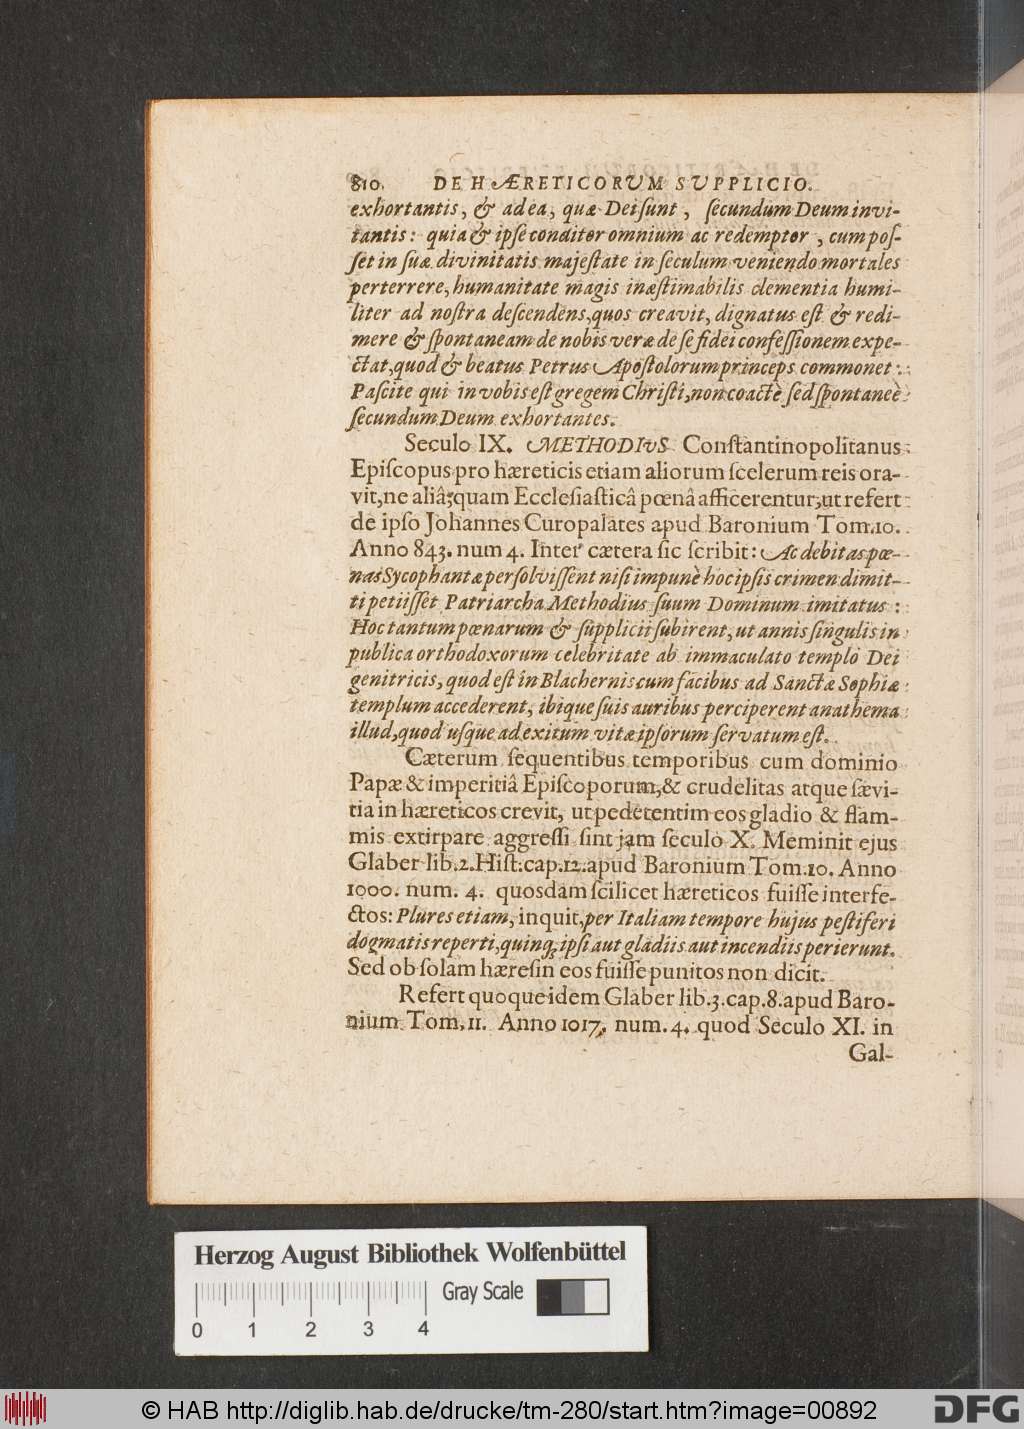 810. DE HÆRETICORUM SUPPLICIO.
exhortantis, & ad ea, quæ Dei sunt, secundum Deum invi-
tantis: quia & ipse conditor omnium ac redemptor, cum pos-
set in suæ divinitatis majestate in seculum veniendo mortales
perterrere, humanitate magis inæstimabilis clementia humi-
liter ad nostra descendens, quos creavit, dignatus est & redi-
mere & spontaneam de nobis veræ de se fidei confessionem expe-
ctat, quod & beatus Petrus Apostolorum princeps commonet:
Pascite qui in vobis est gregem Christi, non coactè sed spontaneè
secundum Deum exhortantes.
Seculo IX. METHODIUS Constantinopolitanus
Episcopus pro hæreticis etiam aliorum scelerum reis ora-
vit, ne aliâ, quam Ecclesiasticâ pœnâ afficerentur, ut refert
de ipso Johannes Curopalates apud Baronium Tom. 10.
Anno 843. num 4. Inter cætera sic scribit: Ac debitas pœ-
nas Sycophantæ persolvissent nisi impunè hoc ipsis crimen dimit-
ti petiisset Patriarcha Methodius suum Dominum imitatus:
Hoc tantum pœnarum & supplicii subirent, ut annis singulis in
publica orthodoxorum celebritate ab immaculato templo Dei
genitricis, quod est in Blachernis cum facibus ad Sanctæ Sophiæ
templum accederent, ibique suis auribus perciperent anathema
illud, quod usque ad exitum vitæ ipsorum servatum est.
Cæterum sequentibus temporibus cum dominio
Papæ & imperitiâ Episcoporum, & crudelitas atque sævi-
tia in hæreticos crevit, ut pedetentim eos gladio & flam-
mis extirpare aggressi sint jam seculo X. Meminit ejus
Glaber lib. 2. Hist. cap. 12. apud Baronium Tom. 10. Anno
1000. num. 4. quosdam scilicet hæreticos fuisse interfe-
ctos: Plures etiam, inquit, per Italiam tempore hujus pestiferi
dogmatis reperti, quinq; ipsi aut gladiis aut incendiis perierunt.
Sed ob solam hæresin eos fuisse punitos non dicit.
Refert quoque idem Glaber lib. 3. cap. 8. apud Baro-
nium Tom. 11. Anno 1017. num. 4. quod Seculo XI. in
Gal-
Herzog August Bibliothek Wolfenbüttel
Gray Scale
0 1 2 3 4
© HAB http://diglib.hab.de/drucke/tm-280/start.htm?image=00892
DFG